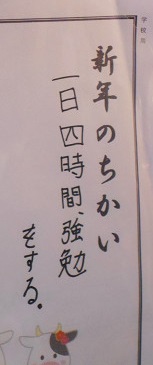 学校用
新年のちかい
一日四時間、強勉
をする。